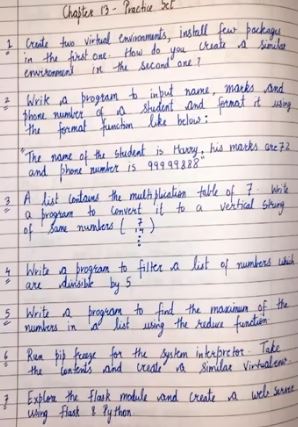 Chapter 13 - Practice Set
1 Create two virtual environments, install few packages
in the first one. How do you create a similar
environment in the second one?
2 Write a program to input name, marks and
phone number of a student and format it using
the format function like below:
"The name of the student is Harry, his marks are 72
and phone number is 99999888"
3 A list contains the multiplication table of 7. Write
a program to convert it to a vertical string
of same numbers ( 7
14
: )
4 Write a program to filter a list of numbers which
are divisible by 5
5 Write a program to find the maximum of the
numbers in a list using the reduce function.
6 Run pip freeze for the system interpreter. Take
the contents and create a similar virtualenv.
7 Explore the flask module and create a web server
using flask & Python.